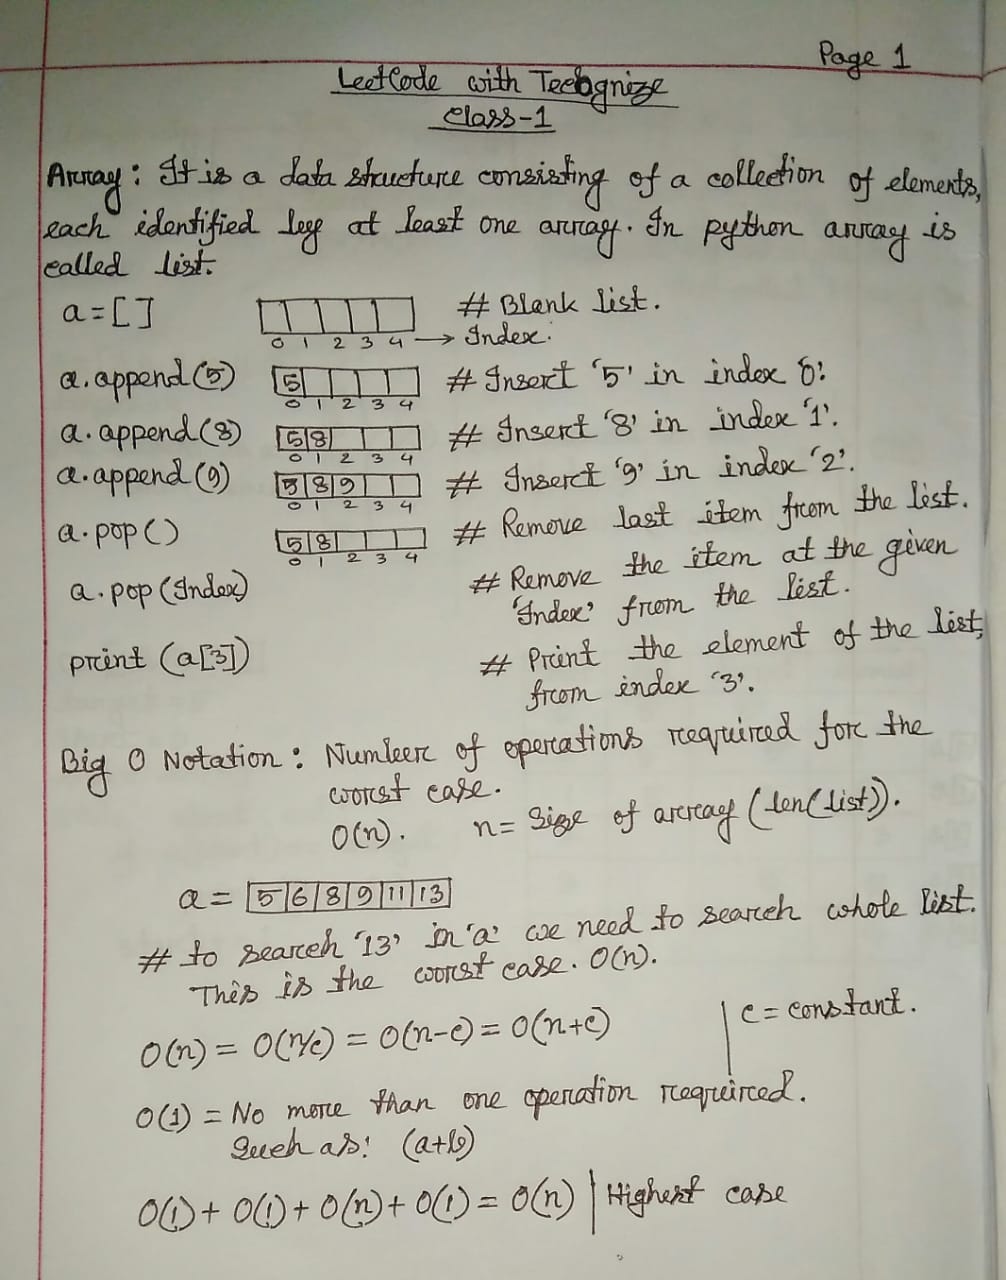 Page 1
LeetCode with Tecognize
Class-1
Array: It is a data structure consisting of a collection of elements,
each identified by at least one array. In python array is
called list.
a = [ ] # Blank list.
0 1 2 3 4 → Index.
a.append(5) 5 # Insert '5' in index 0.
0 1 2 3 4
a.append(8) 5 8 # Insert '8' in index '1'.
0 1 2 3 4
a.append(9) 5 8 9 # Insert '9' in index '2'.
0 1 2 3 4
a.pop() 5 8 # Remove last item from the list.
0 1 2 3 4
a.pop(Index) # Remove the item at the given
'Index' from the list.
print (a[3]) # Print the element of the list,
from index '3'.
Big O Notation: Number of operations required for the
worst case.
O(n). n = Size of array (len(list)).
a = 5 6 8 9 11 13
# to search '13' in 'a' we need to search whole list.
This is the worst case. O(n).
O(n) = O(n/c) = O(n-c) = O(n+c) | c = constant.
O(1) = No more than one operation required.
Such as: (a+b)
O(1) + O(1) + O(n) + O(1) = O(n) | Highest case